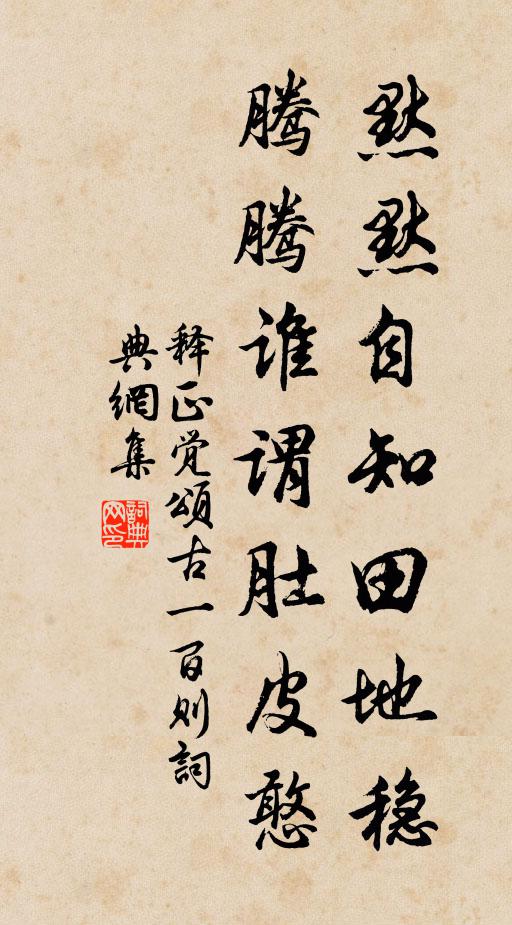 默默自知田地稳
腾腾谁谓肚皮憨
释正觉颂古一百则詞
典網集
詞典网印